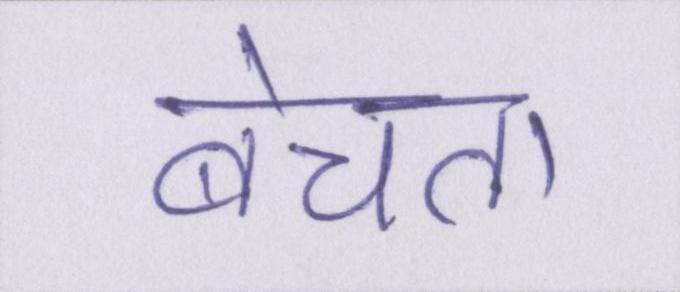 बेचता